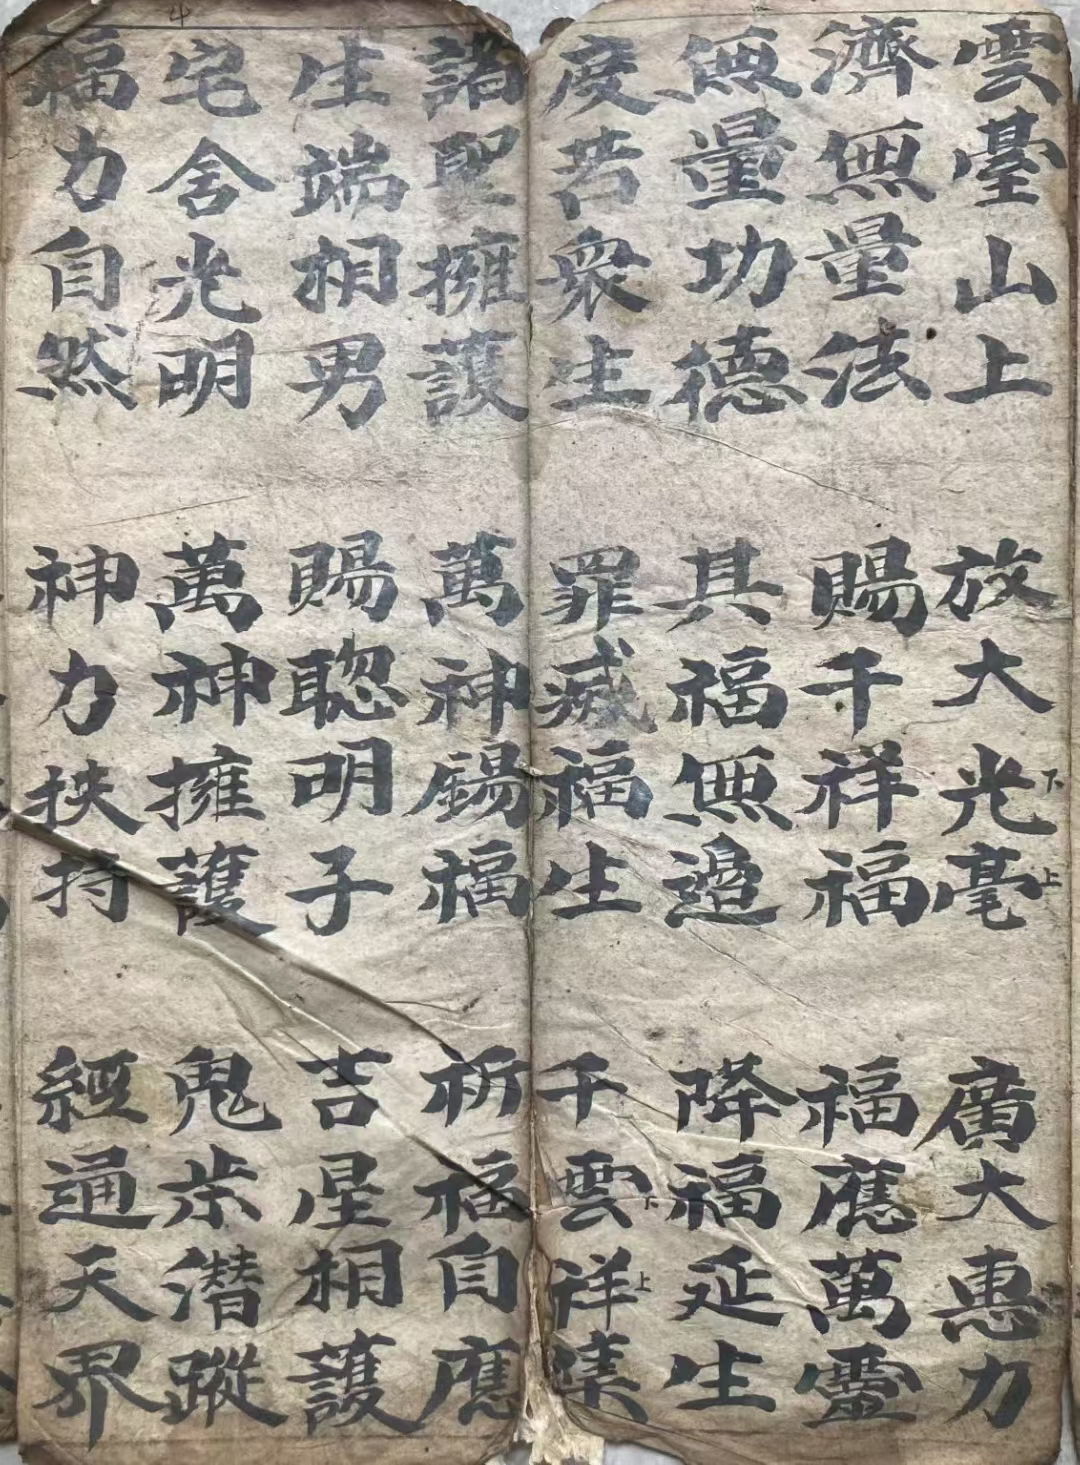 雲臺山上 放大光毫 廣大惠力
下 上
濟無量法 賜千祥福 福應萬靈
無量功德 其福無邉 降福延生
度苦衆生 罪滅福生 千雲祥集
下 上
諸聖擁護 萬神錫福 祈福自應
生端相男 賜聰明子 吉星相護
宅舍光明 萬神擁護 鬼步潜蹤
福力自然 神力扶持 經通天界